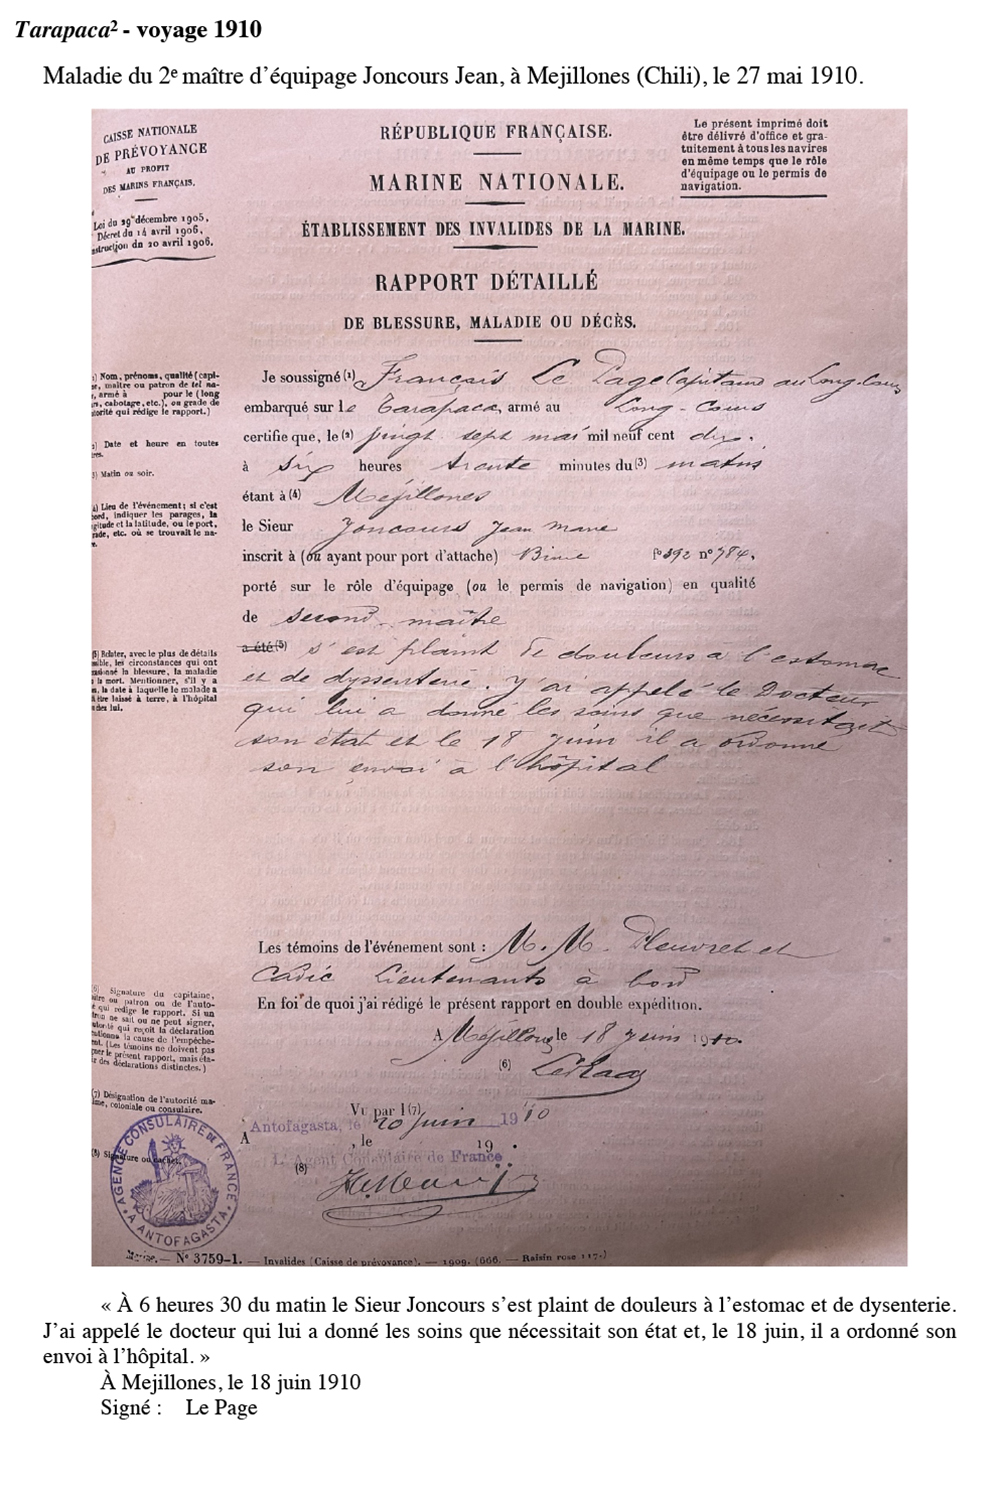 Tarapaca² - voyage 1910
Maladie du 2e maître d’équipage Joncours Jean, à Mejillones (Chili), le 27 mai 1910.
CAISSE NATIONALE
DE PRÉVOYANCE
AU PROFIT
DES MARINS FRANÇAIS.
Loi du 29 décembre 1905,
Décret du 14 avril 1906,
struction du 20 avril 1906.
RÉPUBLIQUE FRANÇAISE.
MARINE NATIONALE.
ÉTABLISSEMENT DES INVALIDES DE LA MARINE.
RAPPORT DÉTAILLÉ
DE BLESSURE, MALADIE OU DÉCÈS.
Le présent imprimé doit
être délivré d'office et gra-
tuitement à tous les navires
en même temps que le rôle
d'équipage ou le permis de
navigation.
) Nom, prénoms, qualité (capi-
e, maître ou patron de tel na-
, armé à pour le (long
rs, cabotage, etc.), ou grade de
torité qui rédige le rapport.)
) Date et heure en toutes
res.
) Matin ou soir.
) Lieu de l'événement; si c'est
bord, indiquer les parages, la
gitude et la latitude, ou le port,
rade, etc. où se trouvait le na-
e.
Je soussigné (1) François Le Page Capitaine au Long-Cours
embarqué sur le Tarapaca, armé au Long-Cours
certifie que, le (2) vingt sept mai mil neuf cent dix.
à six heures trente minutes du (3) matin
étant à (4) Mejillones
le Sieur Joncours Jean Marie
inscrit à (ou ayant pour port d'attache) Binic fº 392 nº 784,
porté sur le rôle d'équipage (ou le permis de navigation) en qualité
de second maître
a été (5) s'est plaint de douleurs a l'estomac
et de dyssenterie. J'ai appelé le Docteur
qui lui a donné les soins que nécessitait
son état et le 18 juin il a ordonné
son envoi à l'hôpital
(5) Relater, avec le plus de détails
sible, les circonstances qui ont
sionné la blessure, la maladie
la mort. Mentionner, s'il y a
, la date à laquelle le malade a
être laissé à terre, à l'hôpital
des lui.
Les témoins de l'événement sont : M. M. Pleuvret et
Cadic Lieutenants à bord
En foi de quoi j'ai rédigé le présent rapport en double expédition.
A Mejillones le 18 juin 1910.
(6) Le Page
(6) Signature du capitaine,
ître ou patron ou de l'auto-
é qui rédige le rapport. Si un
ne sait ou ne peut signer,
torité qui reçoit la déclaration
la cause de l'empêche-
nt. (Les témoins ne doivent pas
ner le présent rapport, mais éta-
r des déclarations distinctes.)
(7) Désignation de l'autorité ma-
ime, coloniale ou consulaire.
(8) Signature ou cachet.
Vu par l (7)
Antofagasta, le 20 juin 1910
A , le 19 .
L'Agent Consulaire de France
(8)
AGENCE CONSULAIRE DE FRANCE
A ANTOFAGASTA
Marine. — Nº 3759-1. — Invalides (Caisse de prévoyance). — 1909. (666. — Raisin rose 117.)
« À 6 heures 30 du matin le Sieur Joncours s’est plaint de douleurs à l’estomac et de dysenterie.
J’ai appelé le docteur qui lui a donné les soins que nécessitait son état et, le 18 juin, il a ordonné son
envoi à l’hôpital. »
À Mejillones, le 18 juin 1910
Signé : Le Page